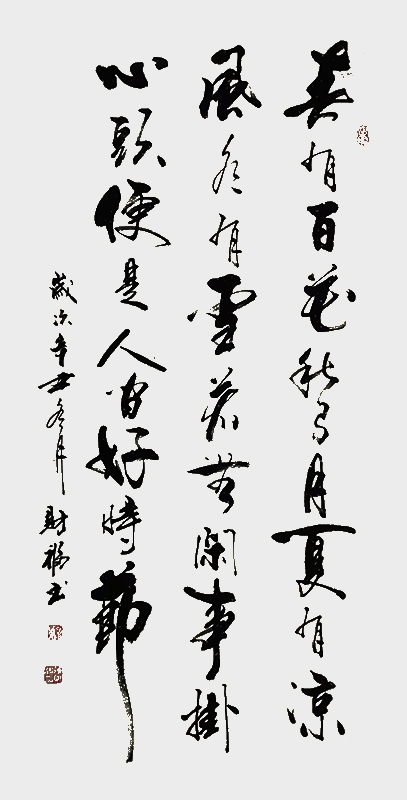 春有百花秋有月夏有涼
風冬有雪若無閑事掛
心頭便是人間好時節
歲次辛丑冬月 財 書